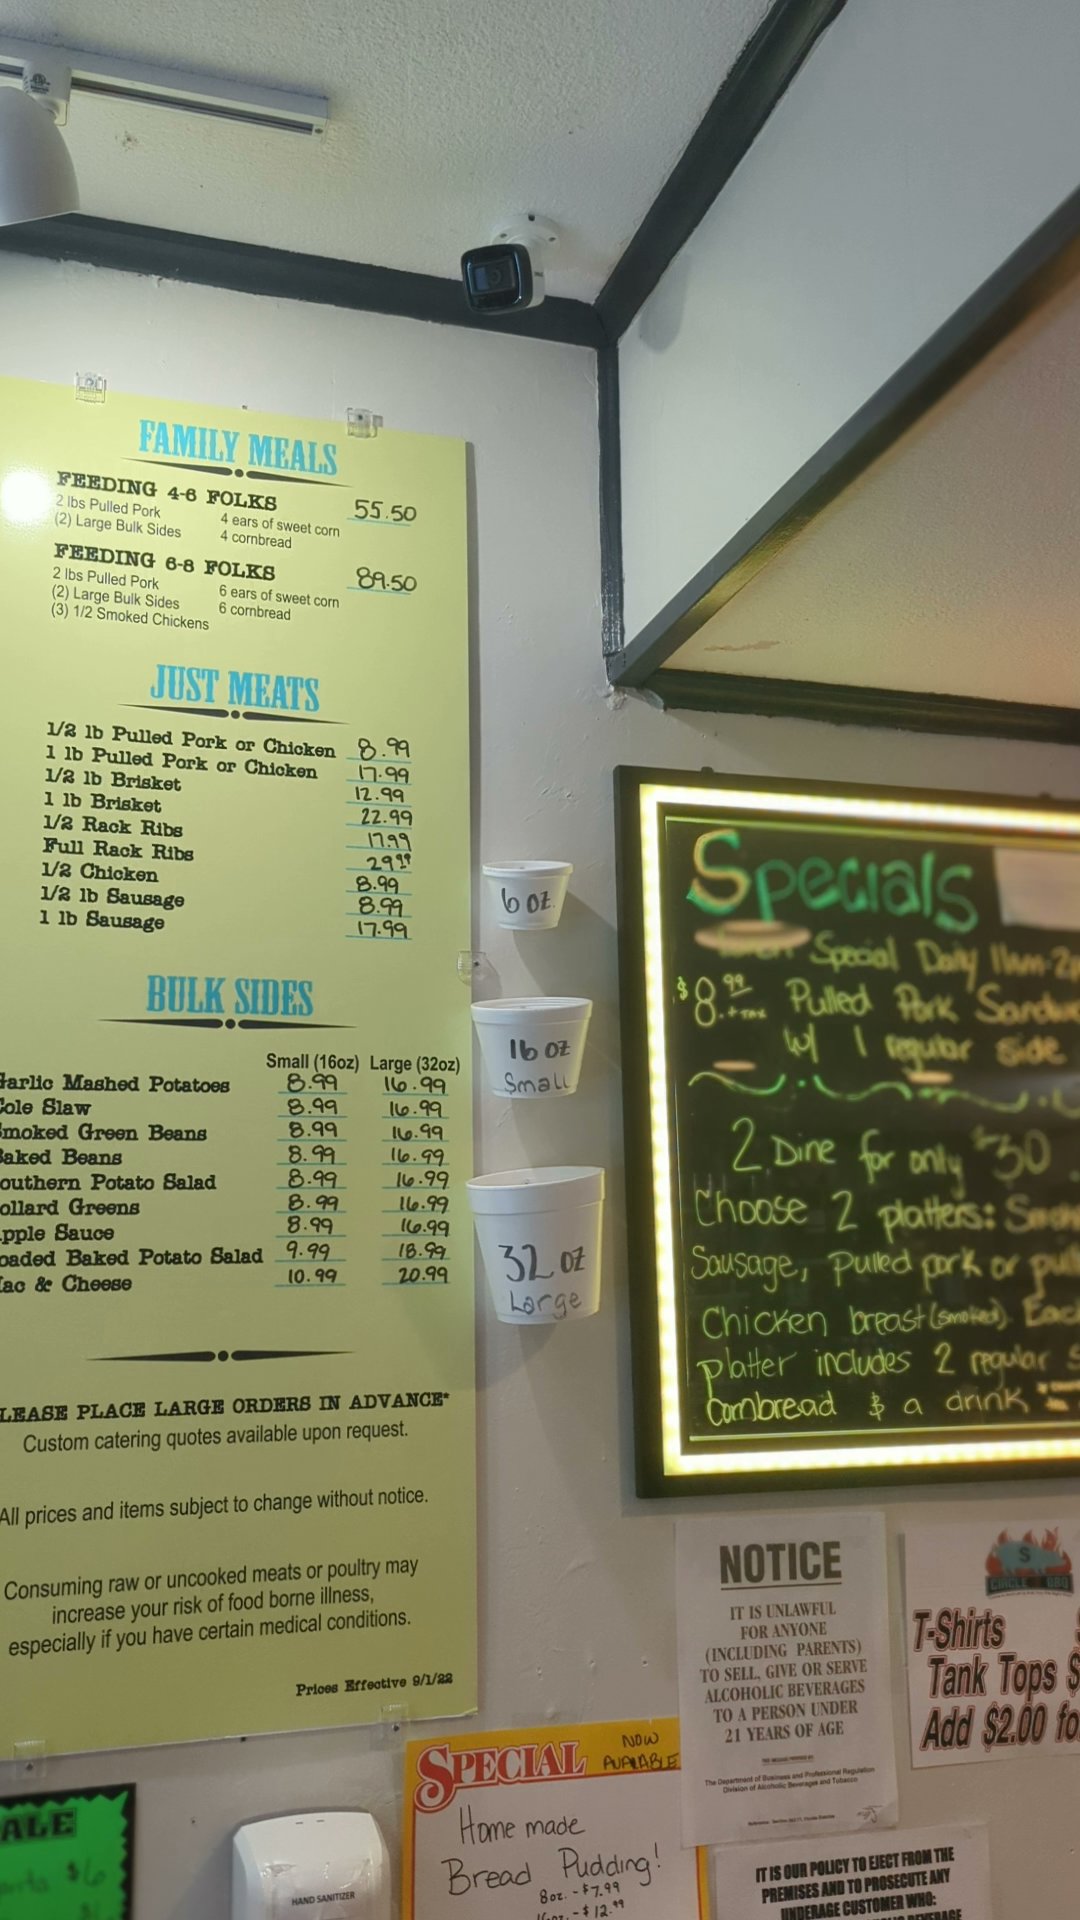 FAMILY MEALS
FEEDING 4-6 FOLKS 55.50
2 lbs Pulled Pork 4 ears of sweet corn
(2) Large Bulk Sides 4 cornbread
FEEDING 6-8 FOLKS 89.50
2 lbs Pulled Pork 6 ears of sweet corn
(2) Large Bulk Sides 6 cornbread
(3) 1/2 Smoked Chickens
JUST MEATS
1/2 lb Pulled Pork or Chicken 8.99
1 lb Pulled Pork or Chicken 17.99
1/2 lb Brisket 12.99
1 lb Brisket 22.99
1/2 Rack Ribs 17.99
Full Rack Ribs 29.99
1/2 Chicken 8.99
1/2 lb Sausage 8.99
1 lb Sausage 17.99
BULK SIDES
Small (16oz) Large (32oz)
Garlic Mashed Potatoes 8.99 16.99
Cole Slaw 8.99 16.99
Smoked Green Beans 8.99 16.99
Baked Beans 8.99 16.99
outhern Potato Salad 8.99 16.99
ollard Greens 8.99 16.99
pple Sauce 8.99 16.99
oaded Baked Potato Salad 9.99 18.99
ac & Cheese 10.99 20.99
LEASE PLACE LARGE ORDERS IN ADVANCE*
Custom catering quotes available upon request.
All prices and items subject to change without notice.
Consuming raw or uncooked meats or poultry may
increase your risk of food borne illness,
especially if you have certain medical conditions.
Prices Effective 9/1/22
6 oz.
16 oz
Small
32 oz
Large
Specials
Special Daily 11am-2p
$8.99 +tax Pulled Pork Sandw
w/ 1 regular side
2 Dine for only $30
Choose 2 platters:
Sausage, pulled pork or pul
Chicken breast (smoked). Eac
platter includes 2 regular S
Cornbread & a drink
NOTICE
IT IS UNLAWFUL
FOR ANYONE
(INCLUDING PARENTS)
TO SELL, GIVE OR SERVE
ALCOHOLIC BEVERAGES
TO A PERSON UNDER
21 YEARS OF AGE
The Department of Business and Professional Regulation
Division of Alcoholic Beverages and Tobacco
S
CIRCLE BBQ
T-Shirts
Tank Tops $
Add $2.00 fo
SPECIAL NOW AVAILABLE
Home made
Bread Pudding!
8oz. - $7.99
16oz. - $12.99
ALE
$6
HAND SANITIZER
IT IS OUR POLICY TO EJECT FROM THE
PREMISES AND TO PROSECUTE ANY
UNDERAGE CUSTOMER WHO:
BEVERAGE